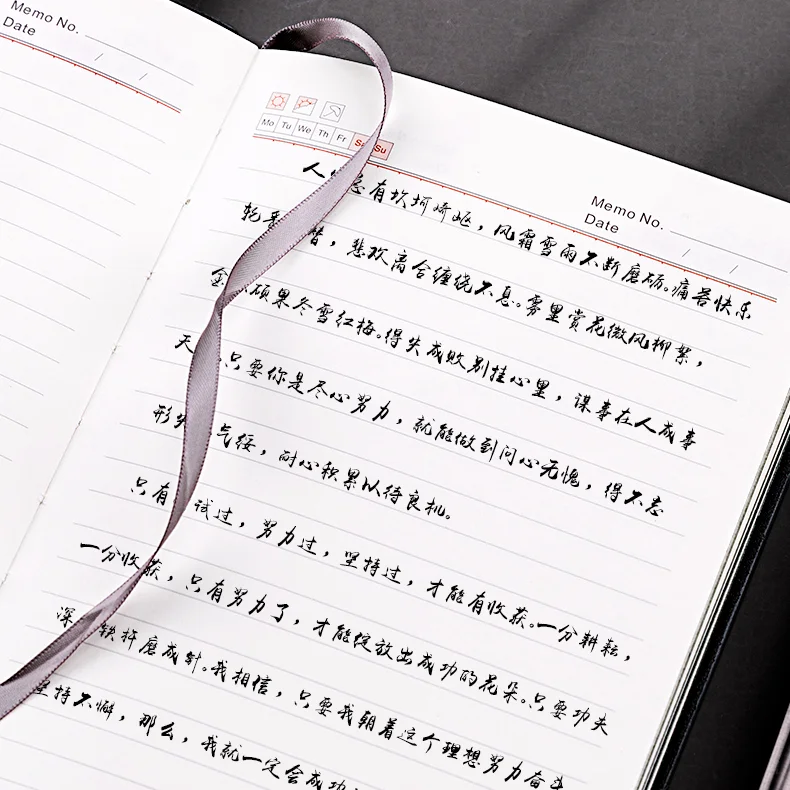 Memo No.
Date / /
Mo Tu We Th Fr Sa Su
Memo No.
Date / /
人 有坎坷崎岖，风霜雪雨不断磨砺。痛苦快乐
轮 替，悲欢离合缠绕不息。雾里赏花微风柳絮，
金 硕果冬雪红梅。得失成败别挂心里，谋事在人成事
天 只要你是尽心努力，就能做到问心无愧，得不忘
形失 气馁，耐心积累以待良机。
只有 试过，努力过，坚持过，才能有收获。一分耕耘，
一分收获，只有努力了，才能绽放出成功的花朵。只要功夫
深 铁杵磨成针。我相信，只要我朝着这个理想努力奋斗
坚持不懈，那么，我就一定会成功